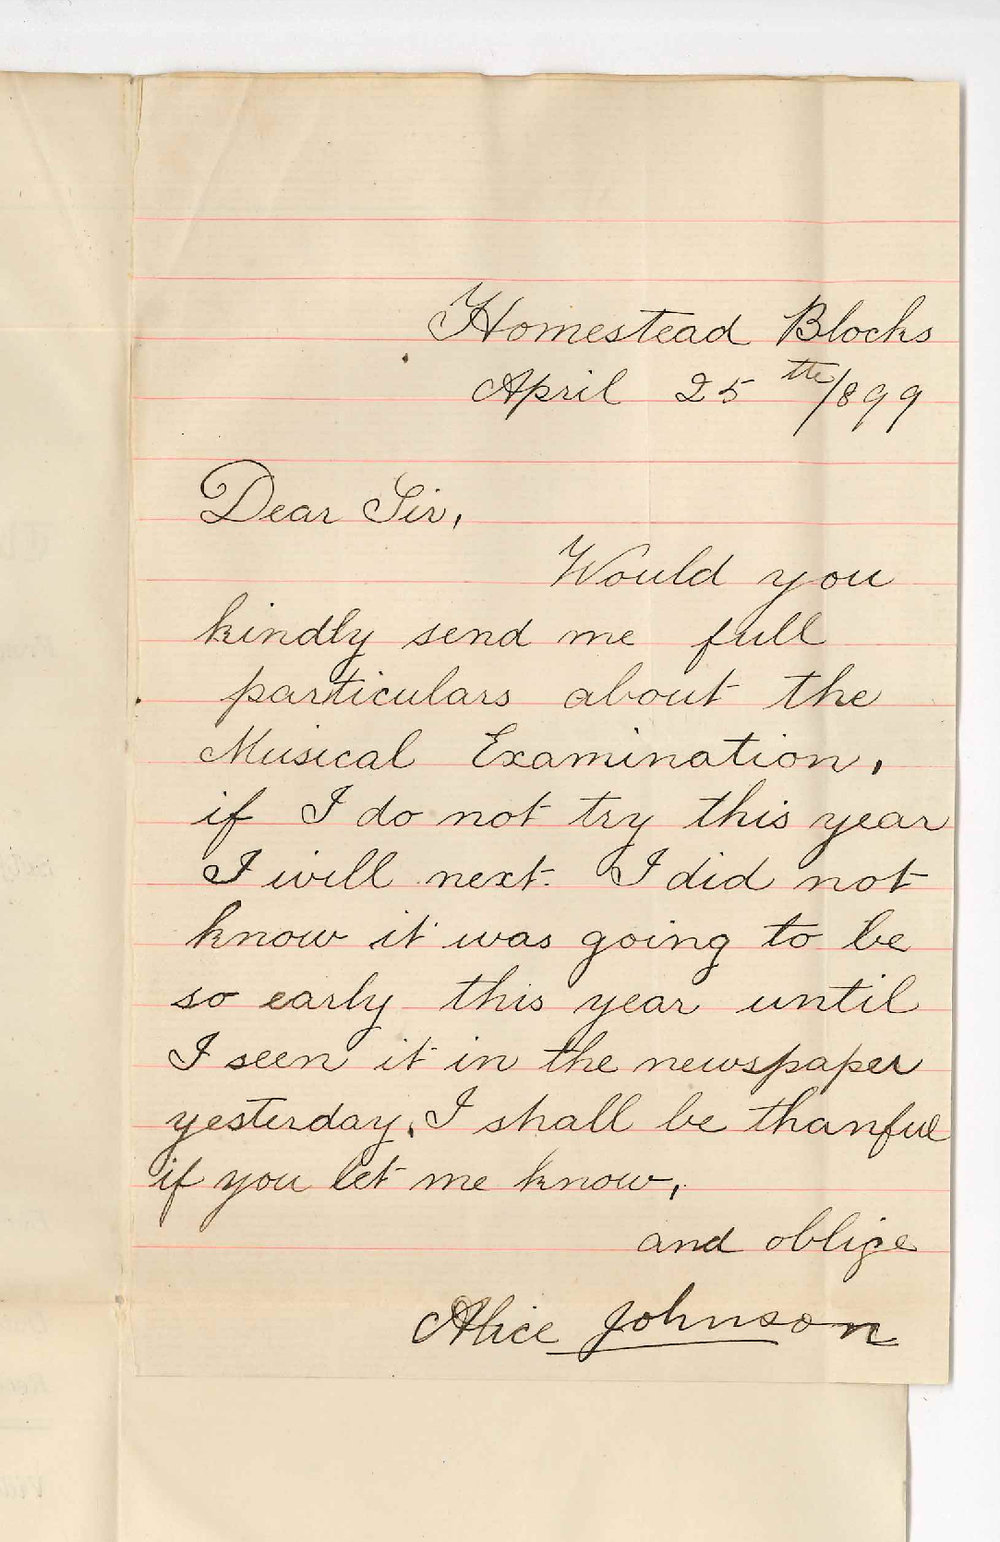 Homestead Blocks
April 25th/899
Dear Sir,
Would you
kindly send me full
particulars about the
Musical Examination,
if I do not try this year
I will next. I did not
know it was going to be
so early this year until
I seen it in the newspaper
yesterday, I shall be thanful
if you let me know,
and oblige
Alice Johnson